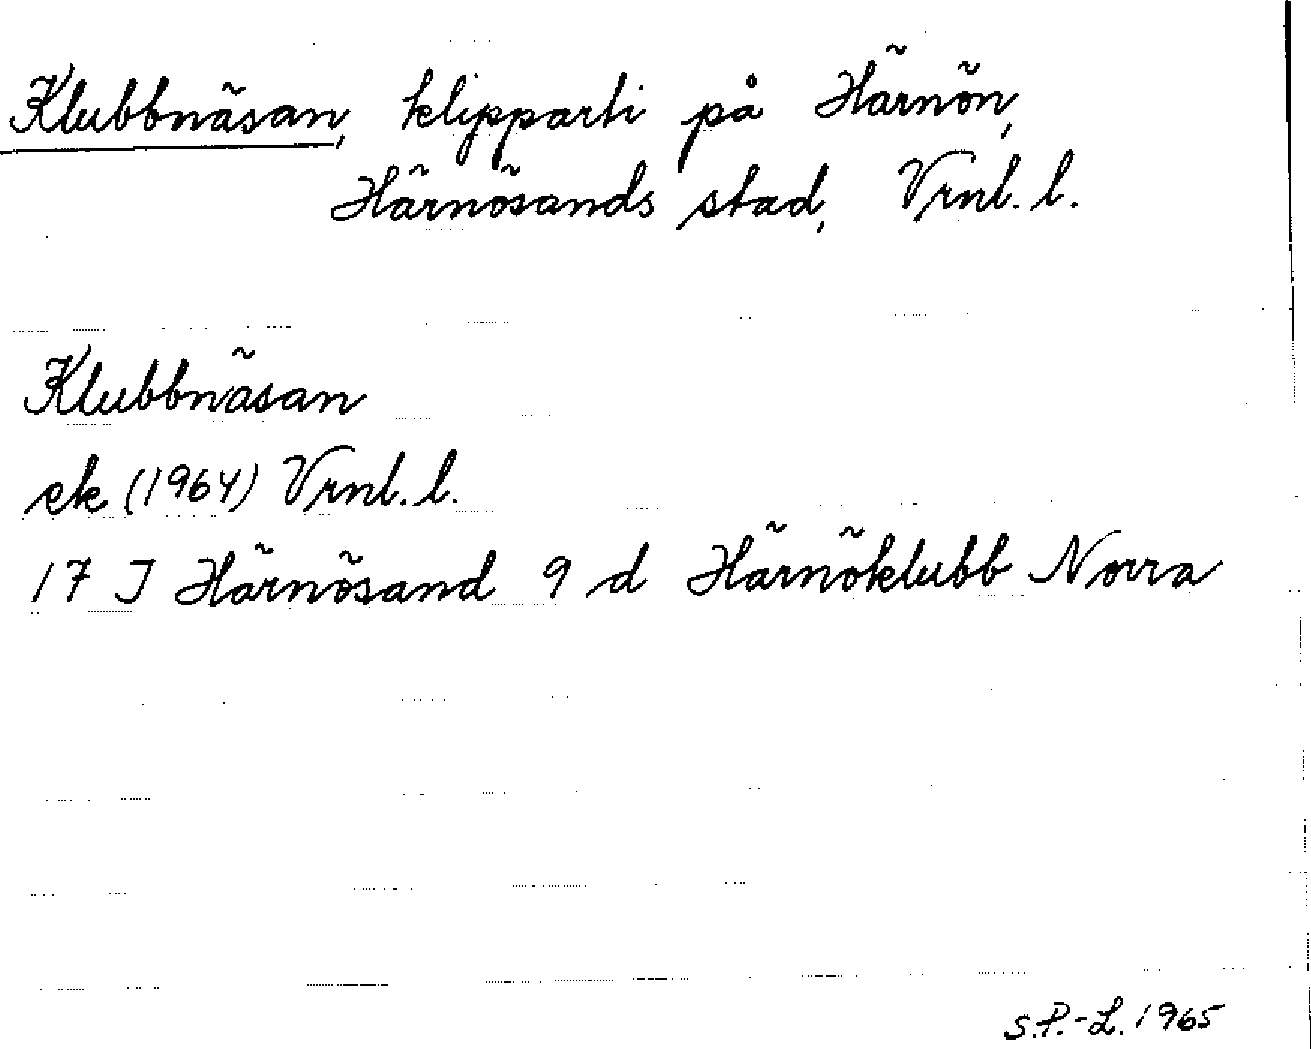 Klubbnäsan, klipparti på Härnön,
Härnösands stad, Vrnl. l.
Klubbnäsan
ek (1964) Vrnl. l.
17 I Härnösand 9 d Härnöklubb Norra
S.P.-L. 1965